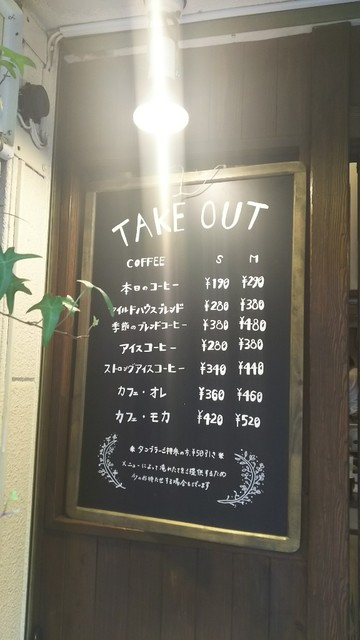 TAKE OUT
COFFEE S M
本日のコーヒー ¥190 ¥290
マイルドハウスブレンド ¥280 ¥380
季節のブレンドコーヒー ¥380 ¥480
アイスコーヒー ¥280 ¥380
ストロングアイスコーヒー ¥340 ¥440
カフェ・オレ ¥360 ¥460
カフェ・モカ ¥420 ¥520
※ タンブラーご持参の方、¥50引き ※
メニューによって淹れたてをご提供するため
少々お待たせする場合もございます